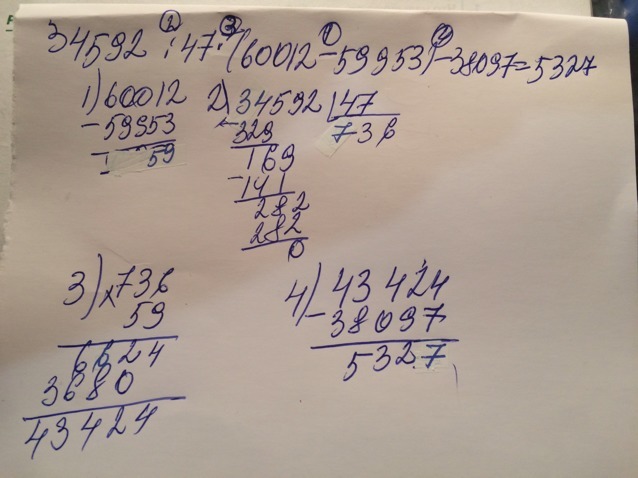 34592 : 47 · (60012 - 59953) - 38097 = 5327
② ③ ① ④
1) 60012
- 59953
59
2) 34592 | 47
- 329 736
169
- 141
282
282
0
3) x 736
59
6624
3680
43424
4) 43424
- 38097
5327